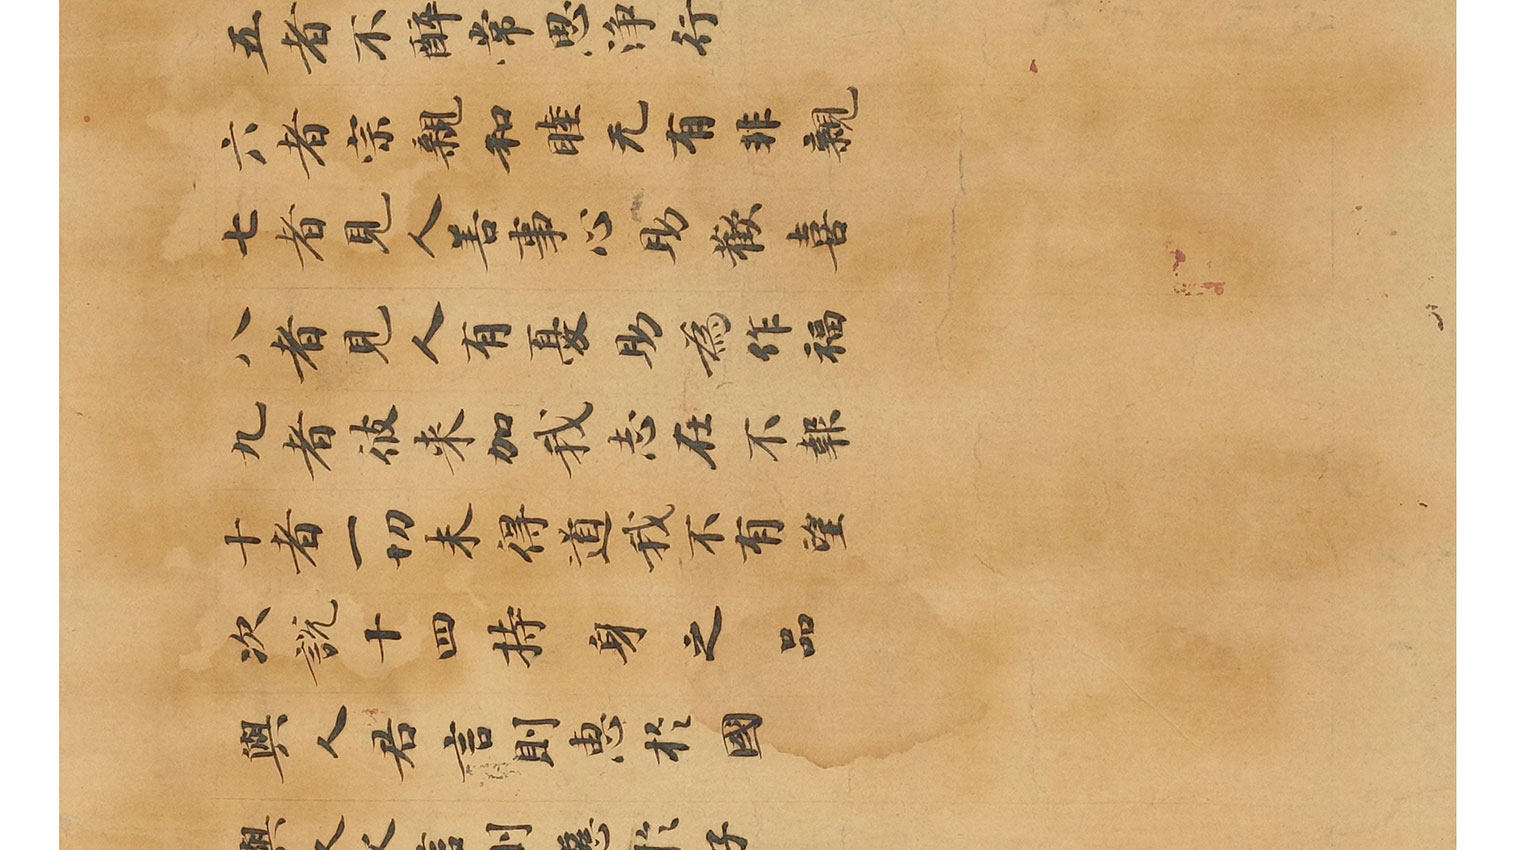 五者不醉常思淨行
六者宗親和睦无有非親
七者見人善事心助歡喜
八者見人有憂助為作福
九者彼来加我志在不報
十者一切未得道我不有望
次説十四持身之品
與人君言則惠於國
與人父言則慈於子